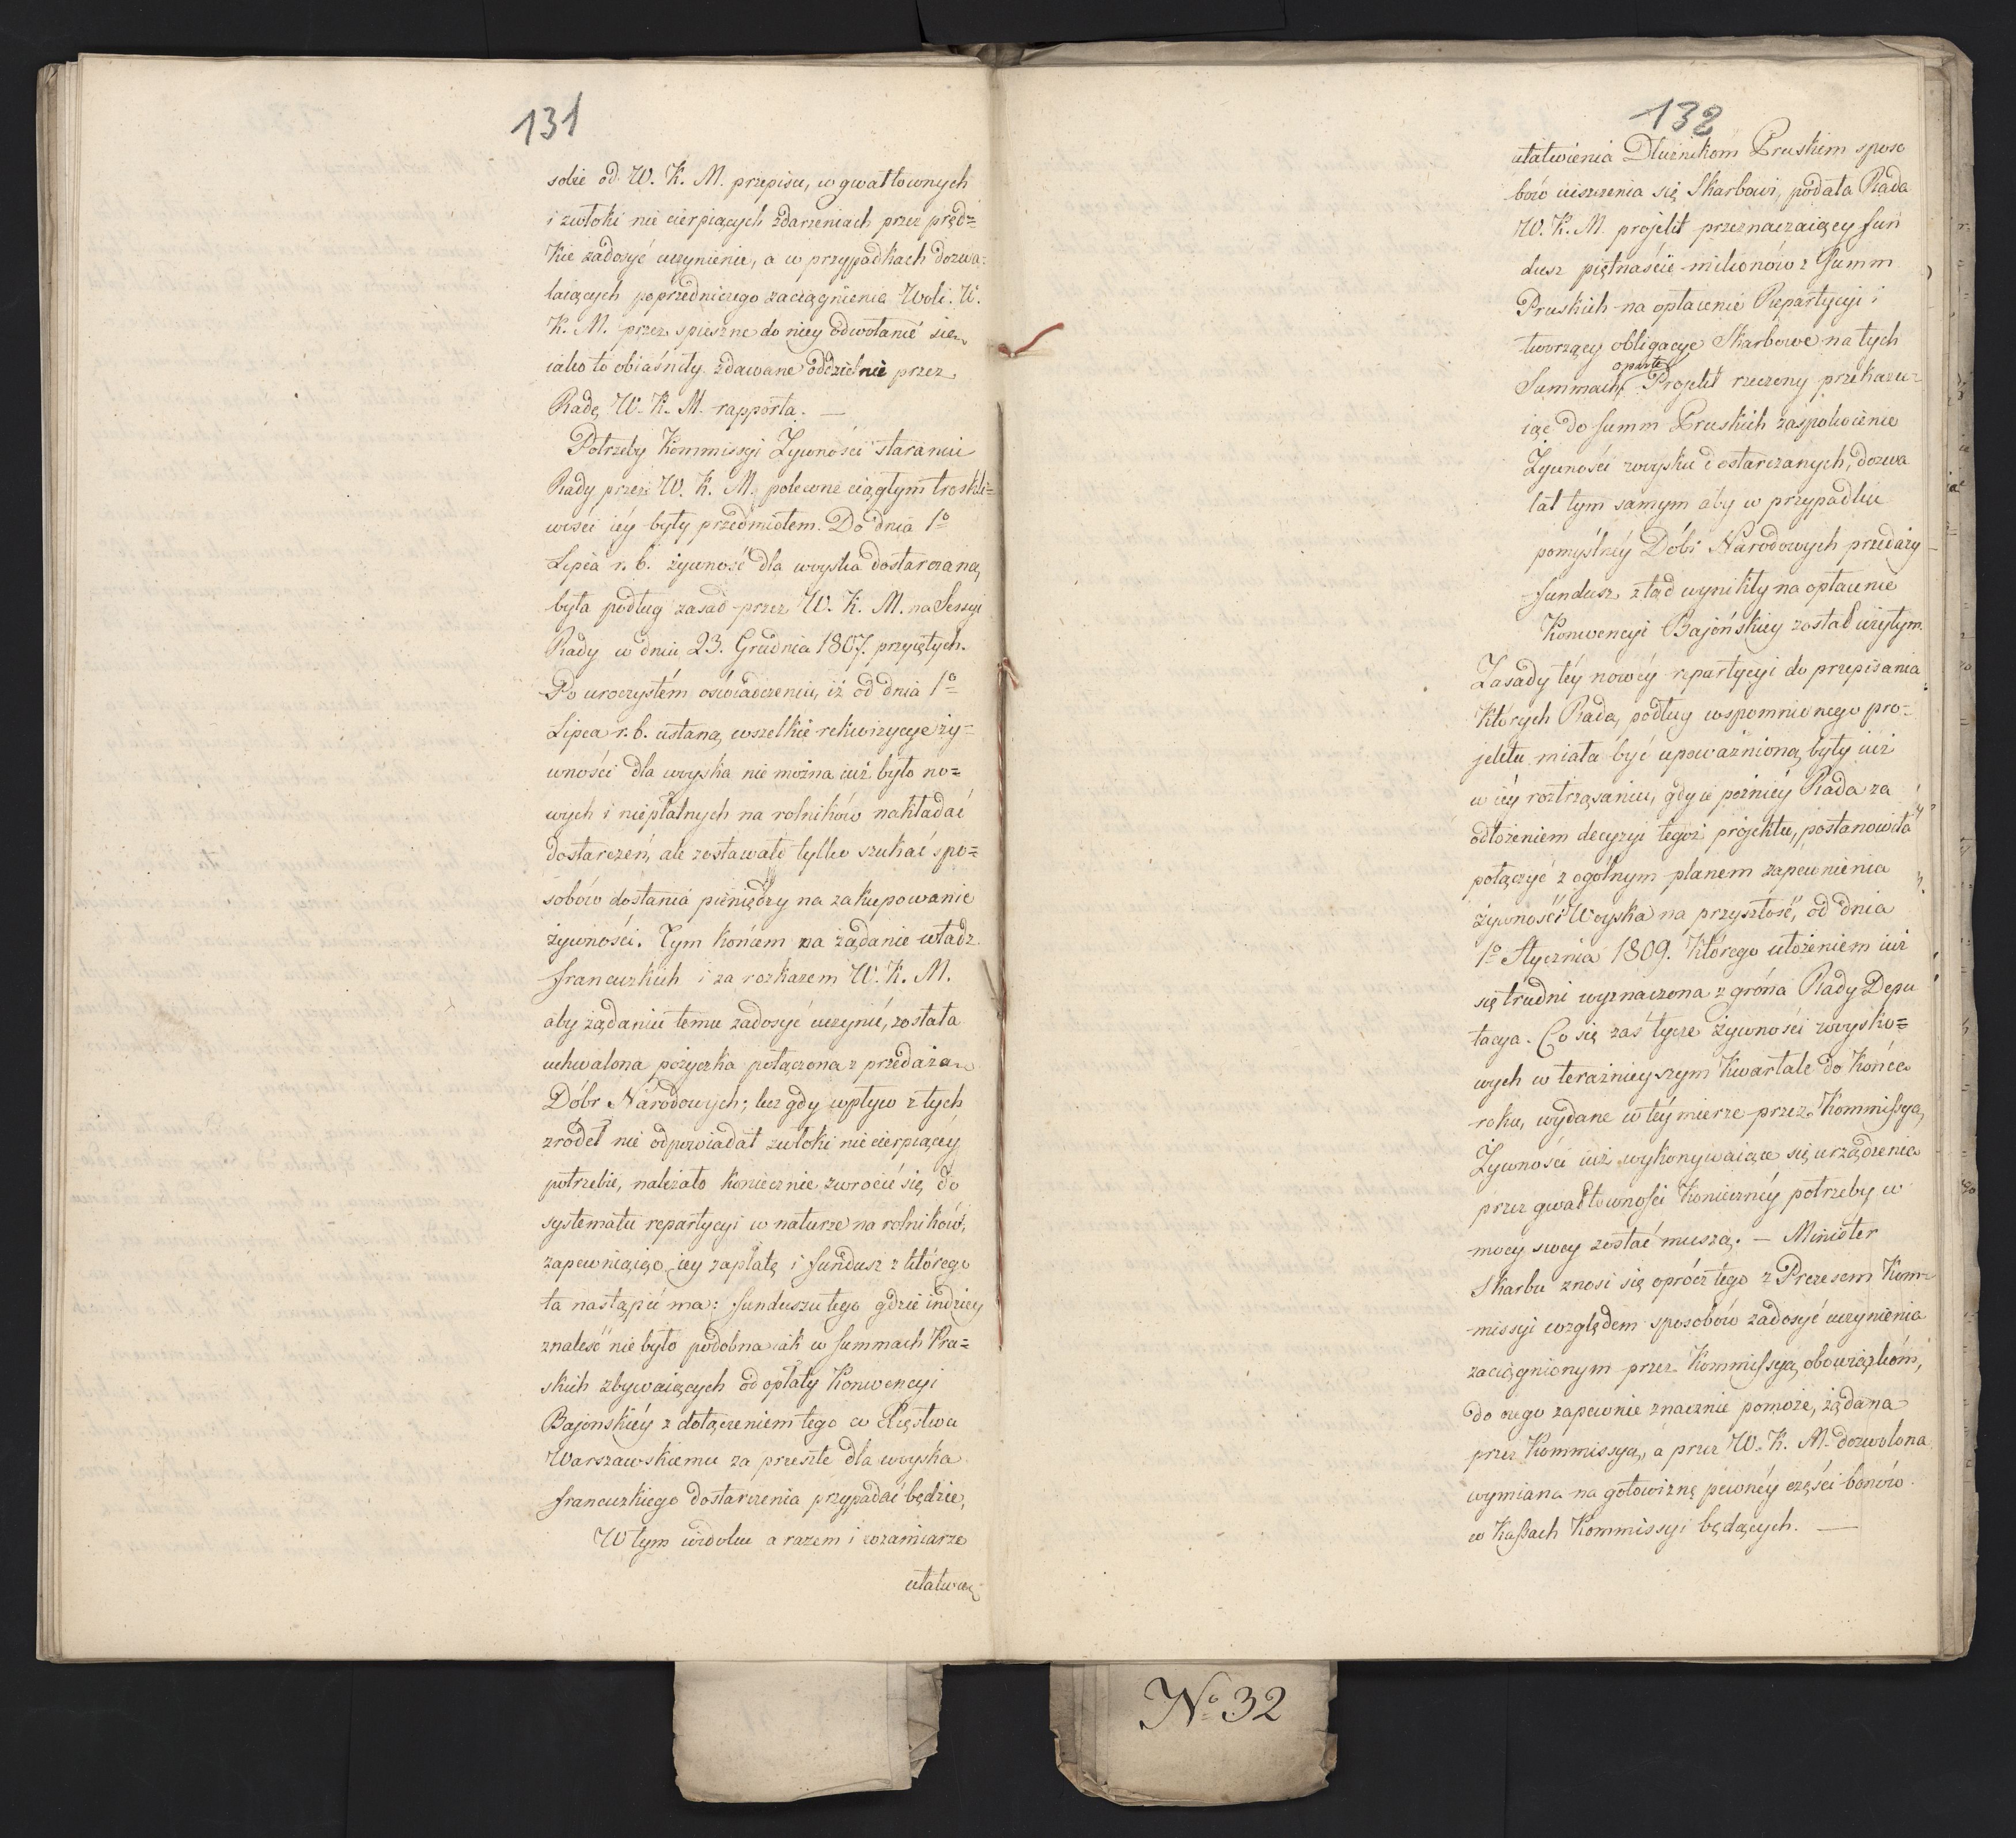 131
sobie od W. K. M. przepisu, w gwałtownych
i zwłoki nie cierpiących zdarzeniach przez pręd=
kie zadosyć uczynienie, a w przypadkach dozwa=
laiących poprzedniczego zaciągnienia Woli. W.
K. M. przez spieszne do niey odwołanie się
iako to obiaśniły zdawane oddzielnie przez
Radę W. K. M. rapporta. —
Potrzeby Kommissyi Żywności staraniu
Rady przez W. K. M. polecone ciągłym troskli=
wości iéy były przedmiotem. Do dnia 1º
Lipca r. b. żywność dla woyska dostarczaną
była podług zasad przez W. K. M. na Sessyi
Rady w dniu 23. Grudnia 1807. przyiętych.
Po uroczystém oświadczeniu, iż od dnia 1º
Lipca r. b. ustaną wszelkie rekwizycye ży=
wności dla woyska nie można iuż było no=
wych i niepłatnych na rolników nakładać
dostarczeń, ale zostawało tylko szukać spo=
sobów dostania pieniędzy na zakupowanie
żywności. Tym końcem na żądanie władz
francuzkich i za rozkazem W. K. M.
aby żądaniu temu zadosyć uczynić, została
uchwalona pożyczka połączona z przedażą
Dóbr Narodowych; lecz gdy wpływ z tych
zrodeł nie odpowiadał zwłoki nie cierpiącéy
potrzebie, należało koniecznie zwrocić się do
systematu repartycyi w naturze na rolników,
zapewniaiąc iey zapłatę i fundusz z którego
ta nastąpić ma: funduszu tego gdzie indziey
znaleść nie było podobna iak w summach Pru=
skich zbywaiących od opłaty Konwencyi
Bajonskiéy z dołączeniem tego co Xięstwu
Warszawskiemu za przeszłe dla woyska
francuzkiego dostarczenia przypadać będzie,
W tym widoku a razem i w zamiarze
ułatwie
132
ułatwienia Dłużnikom Pruskim sposo
bów uiszczenia się Skarbowi, podała Rada
W. K. M. projekt przeznaczaiący fun
dusz piętnaście milionów z Summ
Pruskich na opłacenie Repartycyi i
tworzący obligacye Skarbowe na tych
oparte
Summach. Projekt rzeczony przekazu=
iąc do summ Pruskich zaspokoienie
Żywności woysku dostarczanych, dozwa
lał tym samym aby w przypadku
pomyślnéy Dóbr Narodowych przedaży
fundusz ztąd wynikły na opłacenie
Konwencyi Bajońskiey został użytym.
Zasady téy nowéy repartycyi do przepisania
których Rada, podług wspomnionego pro=
jektu miała być upoważnioną, były iuż
w iéy roztrząsaniu, gdy w poźniéy Rada za
odłożeniem decyzyi tegoż projektu, postanowiła
połączyć z ogólnym planem zapewnienia
żywności Woyska na przyszłość, od dnia
1º Stycznia 1809. którego ułożeniem iuż
się trudni wyznaczona z gróna Rady Depu
tacya. Co się zaś tycze żywności woysko=
wych w teraźnieyszym kwartale do końca
roku, wydane w téy mierze przez Kommissyą
Żywności iuż wykonywaiące się urządzenia
przez gwałtowności konieczney potrzeby w
mocy swey zostać muszą. — Minister
Skarbu znosi się oprócz tego z Prezesem Kom=
missyi względem sposobów zadosyć uczynienia
zaciągnionym przez Kommissyą obowiązkóm,
do czego zapewnie znacznie pomoże, żądana
przez Kommissyą, a przez W. K. M. dozwolona
wymiana na gotowiznę pewnéy części bonów
w Kassach Kommissyi będących. —
Nº 32